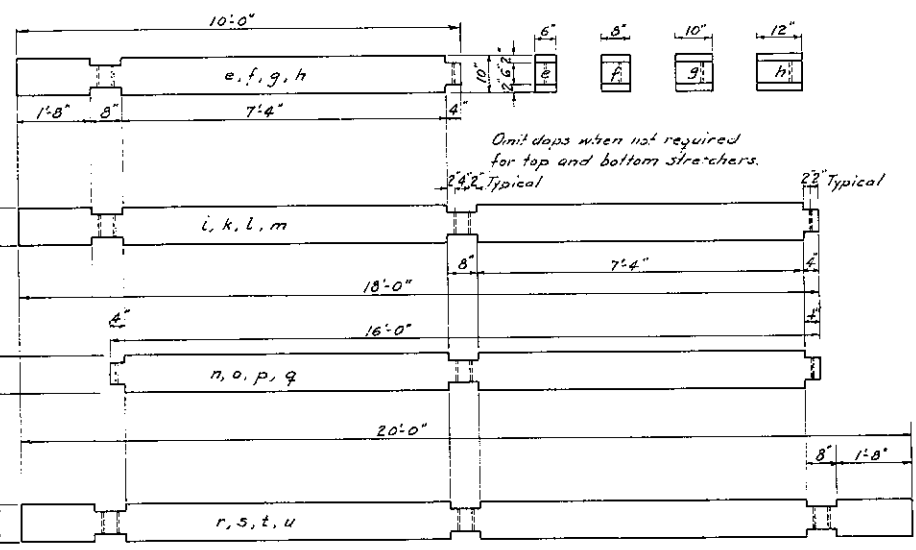 10'-0"
6" 8" 10" 12"
e, f, g, h
10"
2" 6" 2"
e f g h
1'-8" 8" 7'-4" 4"
Omit daps when not required
for top and bottom stretchers.
2" 4" 2" Typical
2" 2" Typical
i, k, l, m
8" 7'-4" 4"
18'-0"
4" 16'-0" 4"
n, o, p, q
20'-0"
8" 1'-8"
r, s, t, u